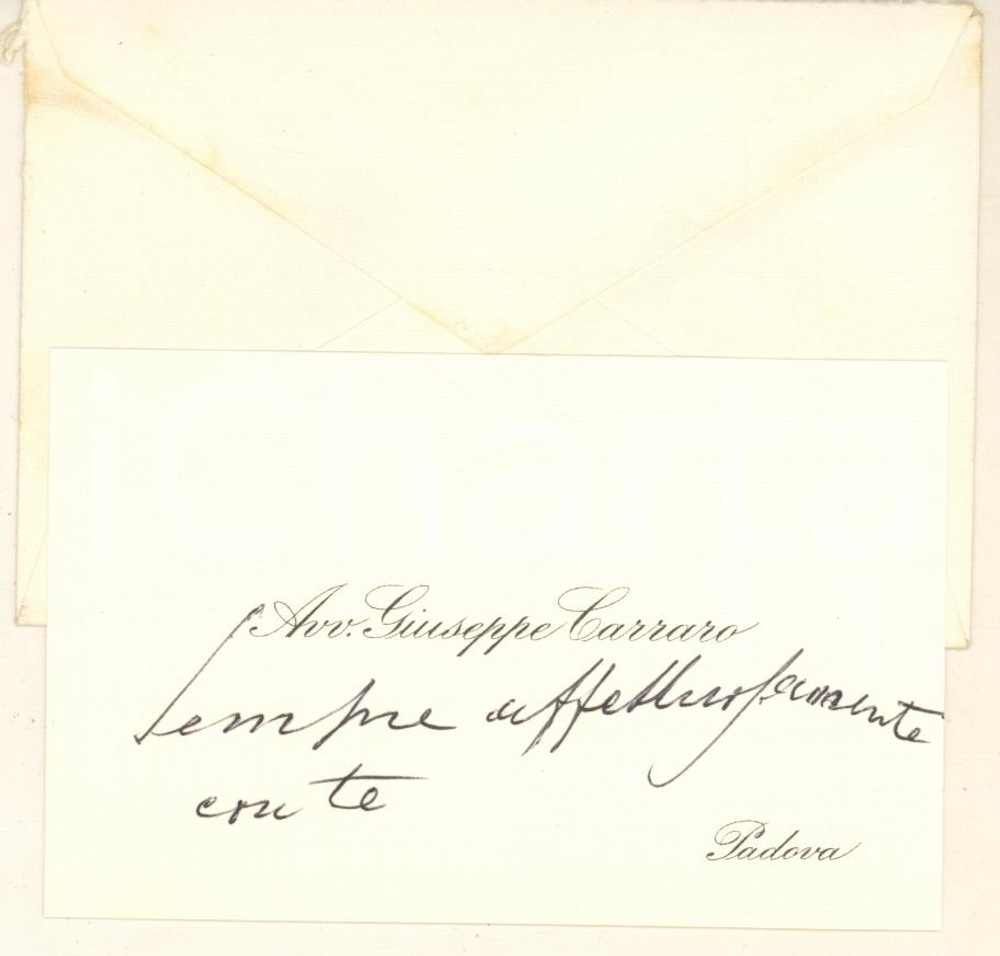 iCharta
Avv. Giuseppe Carraro
Sempre affettuosamente
con te
Padova